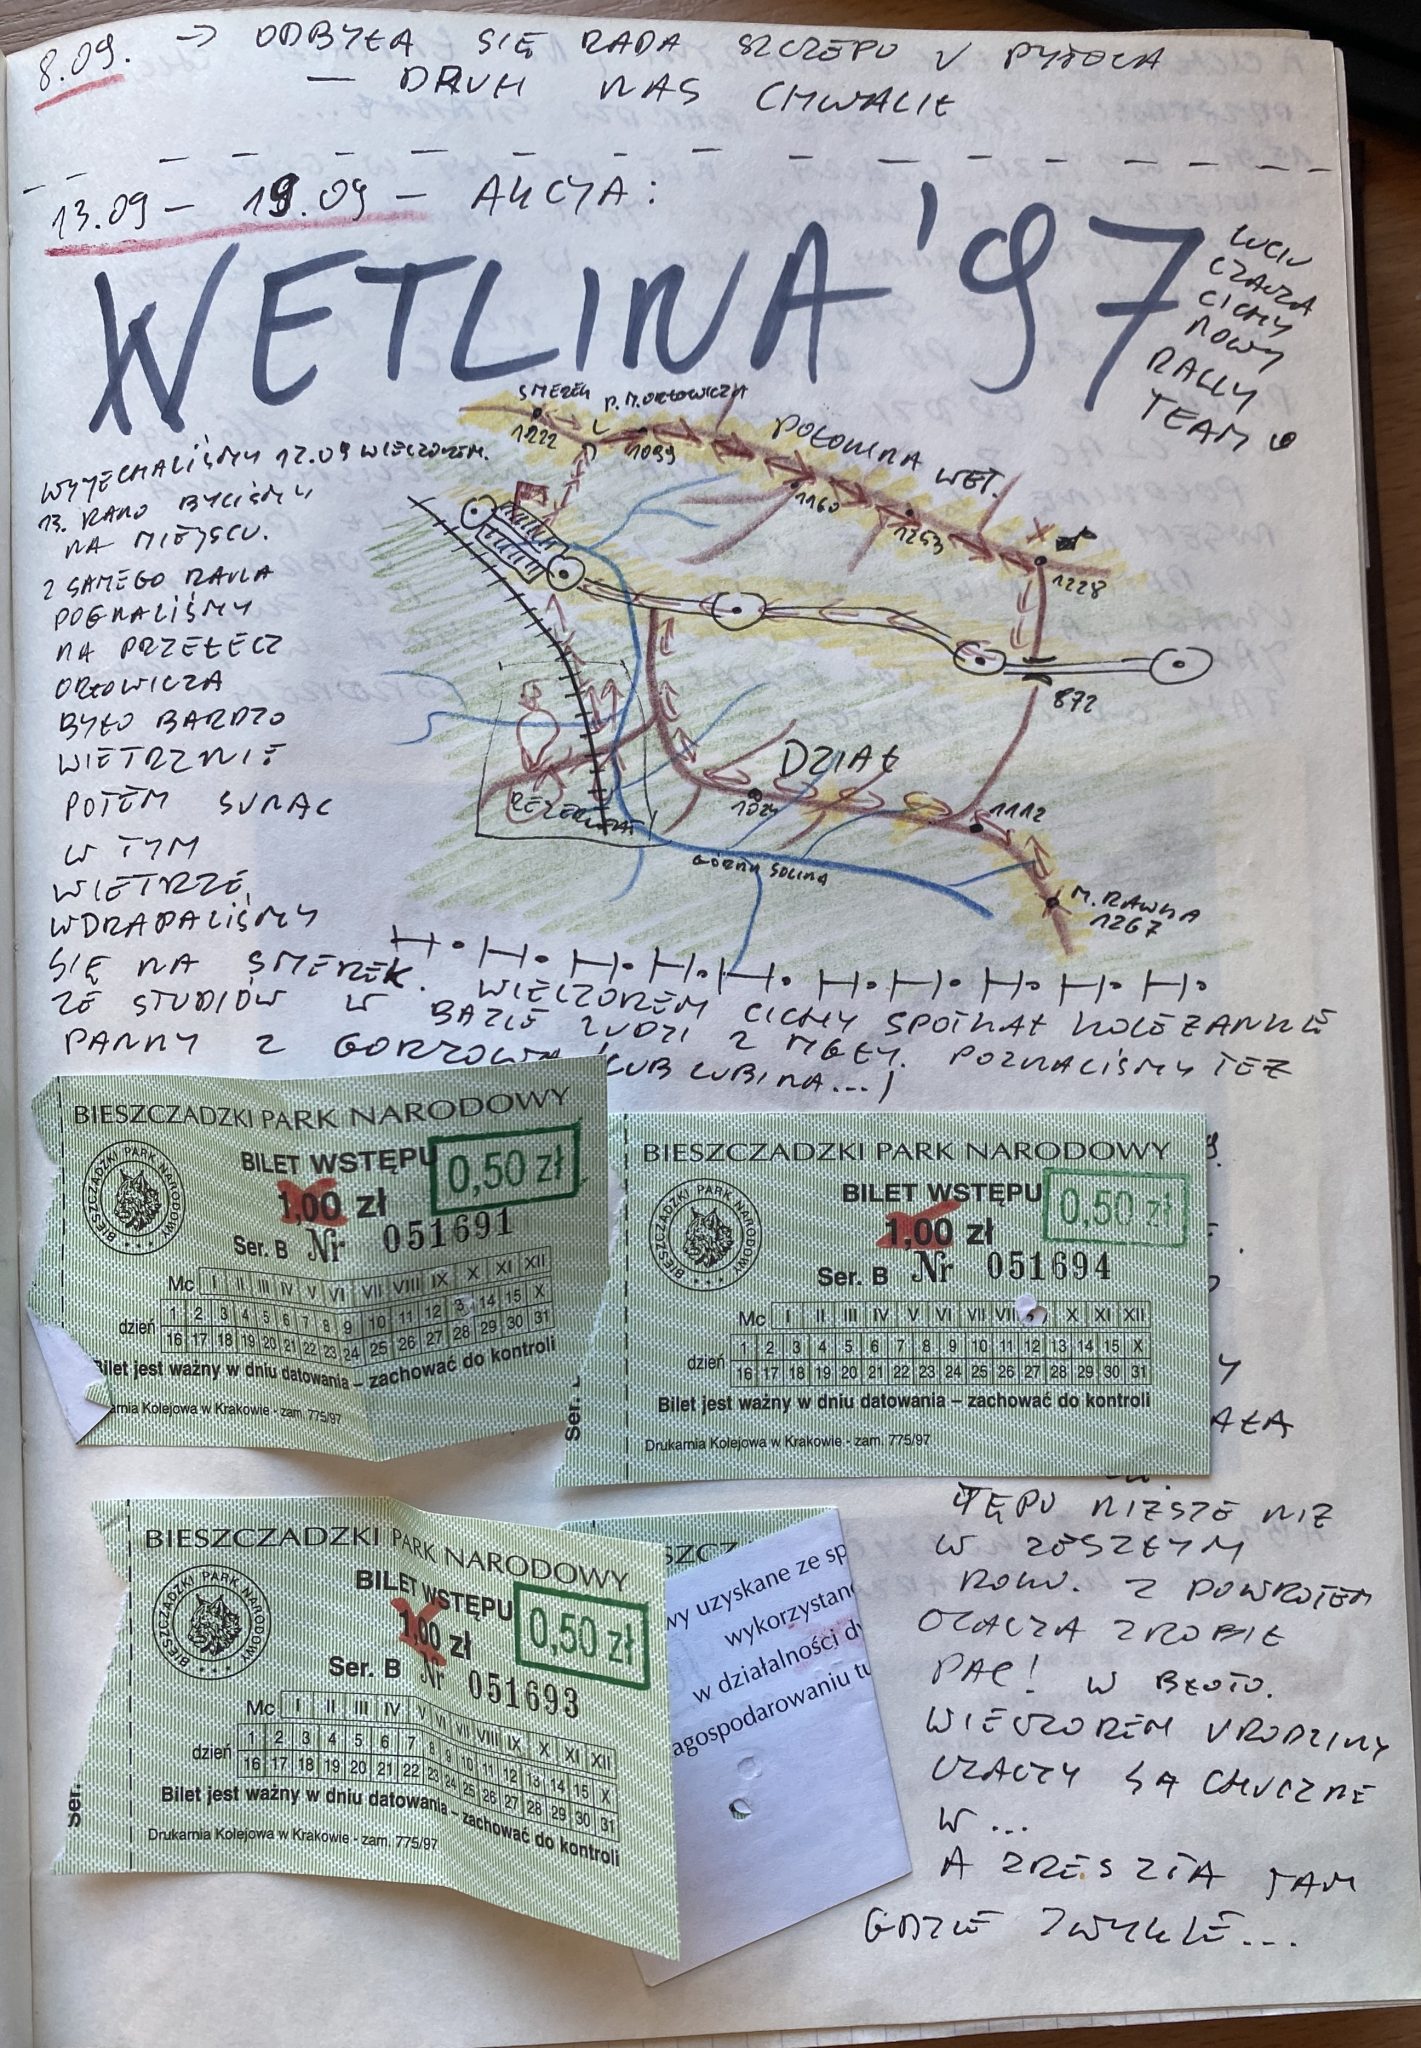 8.09. → ODBYŁA SIĘ RADA SZCZEPU U PYTOCIA
— DRUH NAS CHWALIŁ
13.09 – 19.09 – AKCJA:
WETLINA '97
LUCIU
CZACZA
CICHY
NOWY
RALLY
TEAM
SMEREK
1222
P. M. ORŁOWICZA
1099
POŁONINA WET.
1160
1253
1228
872
DZIAŁ
1112
REZERWAT
GÓRNA SOLINA
M. RAWKA
1267
WYJECHALIŚMY 12.09 WIECZOREM.
13. RANO BYLIŚMY
NA MIEJSCU.
Z SAMEGO RANA
POGNALIŚMY
NA PRZEŁĘCZ
ORŁOWICZA
BYŁO BARDZO
WIETRZNIE
POTEM SUNĄC
W TYM
WIETRZE,
WDRAPALIŚMY
SIĘ NA SMEREK. WIECZOREM CICHY SPOTKAŁ KOLEŻANKĘ
ZE STUDIÓW W BAZIE LUDZI Z MGŁY. POZNALIŚMY TEŻ
PANNY Z GORZOWA (LUB LUBINA...)
BIESZCZADZKI PARK NARODOWY
BIESZCZADZKI PARK NARODOWY
BILET WSTĘPU
0,50 zł
1,00 zł
Ser. B Nr 051691
Mc I II III IV V VI VII VIII IX X XI XII
dzień 1 2 3 4 5 6 7 8 9 10 11 12 3 14 15 X
16 17 18 19 20 21 22 23 24 25 26 27 28 29 30 31
Bilet jest ważny w dniu datowania – zachować do kontroli
arnia Kolejowa w Krakowie - zam. 775/97
BIESZCZADZKI PARK NARODOWY
BIESZCZADZKI PARK NARODOWY
BILET WSTĘPU
0,50 zł
1,00 zł
Ser. B Nr 051694
Mc I II III IV V VI VII VIII X XI XII
dzień 1 2 3 4 5 6 7 8 9 10 11 12 13 14 15 X
16 17 18 19 20 21 22 23 24 25 26 27 28 29 30 31
Bilet jest ważny w dniu datowania – zachować do kontroli
Drukarnia Kolejowa w Krakowie - zam. 775/97
Ser.
BIESZCZADZKI PARK NARODOWY
BIESZCZADZKI PARK NARODOWY
BILET WSTĘPU
0,50 zł
1,00 zł
Ser. B Nr 051693
Mc I II III IV V VI VII VIII IX X XI XII
dzień 1 2 3 4 5 6 7 8 9 10 11 12 13 14 15 X
16 17 18 19 20 21 22 23 24 25 26 27 28 29 30 31
Bilet jest ważny w dniu datowania – zachować do kontroli
Drukarnia Kolejowa w Krakowie - zam. 775/97
Ser.
SZCZ
wy uzyskane ze sp
wykorzystane
w działalności dy
agospodarowaniu tu
AŁA
TĘPU NIŻSZE NIŻ
W ZESZŁYM
ROKU. Z POWROTEM
CZACZA ZROBIŁ
PAC! W BŁOTO.
WIECZOREM URODZINY
CZACZY SĄ CHUCZNE
W ...
A ZRESZTĄ TAM
GDZIE ZWYKLE...